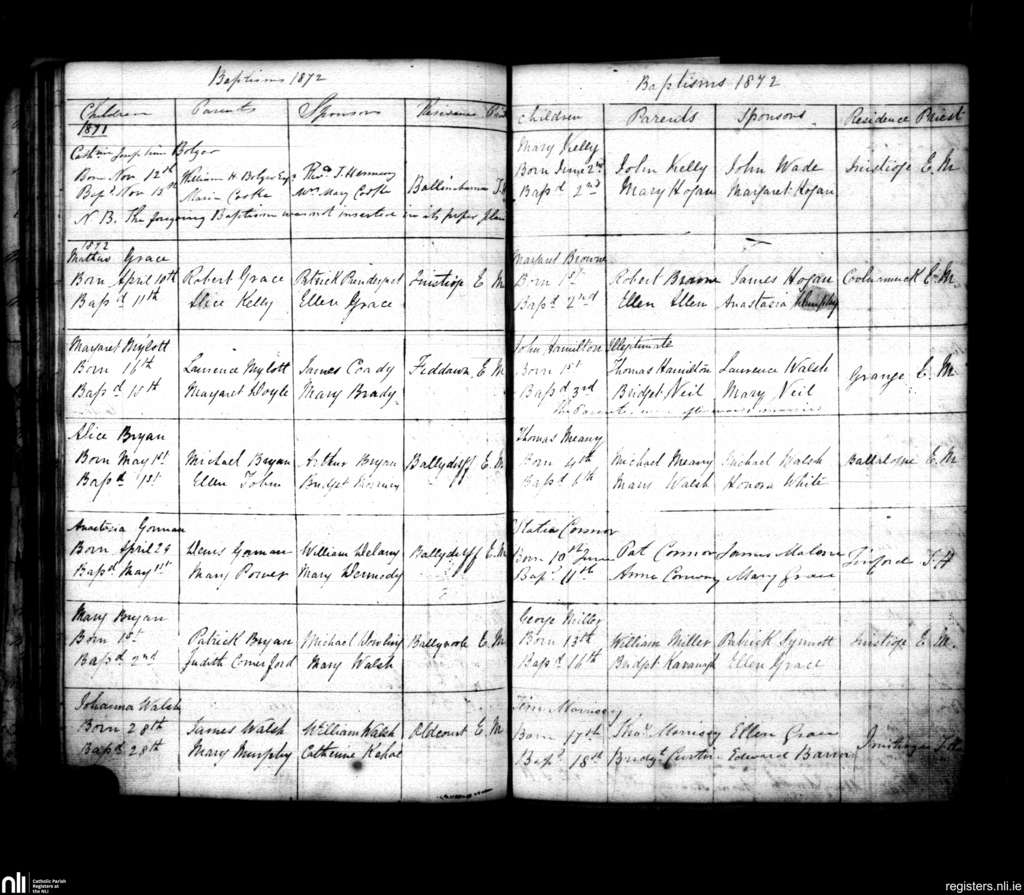 Baptisms 1872
Children Parents Sponsors Residence
1871
Josephine Bolger
Born Nov 12th William H Bolger Esqr Thos J. Hennessy
Bapd Nov 13th Maria Cooke Mrs Mary Cooke
N B. The foregoing Baptism was not inserted in its proper place
1872
Grace
Born April 10th Robert Grace Patrick Prendergast Inistioge E M
Bapd 11th Alice Kelly Ellen Grace
Margaret Mylott
Born 16th Laurence Mylott James Coady Fiddawn E M
Bapd Margaret Doyle Mary Brady
Alice Bryan
Born May 1st Michael Bryan Arthur Bryan Ballyduff E M
Bapd 1st Ellen Tobin Bridget
Anastasia Gorman
Born April 29 Denis Gorman William Delany Ballyduff E M
Bapd May 1st Mary Power Mary Dermody
Mary Bryan
Born 1st Patrick Bryan Michael Dowling E M
Bapd 2nd Judith Comerford Mary Walsh
Johanna Walsh
Born 28th James Walsh William Walsh Oldcourt E M
Bapd 28th Mary Murphy Catherine Kehoe
Baptisms 1872
Children Parents Sponsors Residence Priest
Mary Kelly
Born June 2nd John Kelly John Wade Inistioge E. M
Bapd 2nd Mary Hogan Margaret Hogan
Margaret Browne
Born 1st Robert Browne James Hogan Coolnamuck E. M
Bapd 2nd Ellen Ellen Anastasia Murphy
John Hamilton Illegitimate
Born 1st Thomas Hamilton Laurence Walsh Grange E. M
Bapd 3rd Bridget Neil Mary Neil
The Parents were afterwards married
Thomas Meany
Born 4th Michael Meany Michael Walsh E M
Bapd 6th Mary Walsh Honora White
Statia Connor
Born 10th June Pat Connor James Malone
Bap. 11th Anne Conway Mary Grace
George Miller
Born 13th William Miller Patrick Synnott Inistioge E. M.
Bapd 16th Bridget Kavanagh Ellen Grace
Jim Morrissey
Born 17th Thos Morrissy Ellen Grace
Bap. 18th Bridgt Curtin Edward Barron
nli
Catholic Parish
Registers at
the NLI
registers.nli.ie